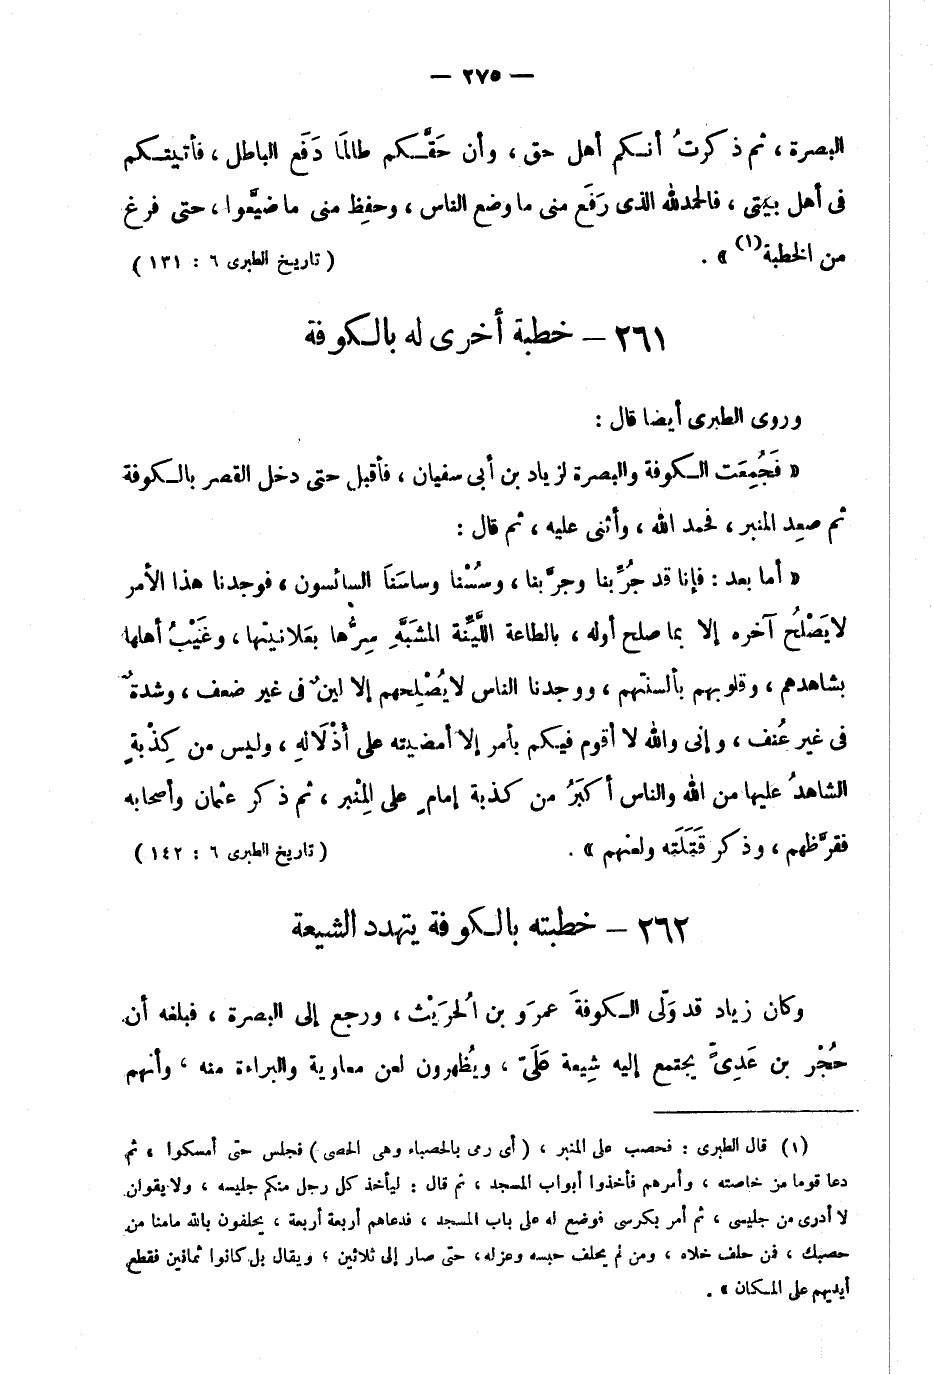 — ٢٧٥ —
البصرة ، ثم ذكرتُ أنكم أهل حق ، وأن حَقَّكم طالمَا دَفَع الباطل ، فأتيتكم
فى أهل بيتى ، فالحمدلله الذى رَفَع منى ما وضع الناس ، وحفِظ منى ما ضيَّعوا ، حتى فرغ
من الخطبة(١) » .
( تاريخ الطبرى ٦ : ١٣١ )
٢٦١ – خطبة أخرى له بالكوفة
وروى الطبرى أيضا قال :
« فَجُمِعَت الكوفة والبصرة لزياد بن أبى سفيان ، فأقبل حتى دخل القصر بالكوفة
ثم صعِد المنبر ، فحمد الله ، وأثنى عليه ، ثم قال :
« أما بعد : فإنا قد جُرِّبنا وجرَّبنا ، وسُسْنا وساسَنَا السائسون ، فوجدنا هذا الأمر
لا يَصْلُح آخره إلا بما صلح أوله ، بالطاعة اللَّيِّنة المشبَّهِ سِرُّها بعَلانيتها ، وغَيْبُ أهلها
بشاهدهم ، وقلوبهم بألسنتهم ، ووجدنا الناس لا يُصْلِحهم إلا لينٌ فى غير ضعف ، وشدةٌ
فى غير عُنف ، وإنى والله لا أقوم فيكم بأمر إلا أمضيته على أَذْلَالهِ ، وليس من كِذْبةٍ
الشاهدُ عليها من الله والناس أكبَرُ من كذبة إمامٍ على المِنْبر ، ثم ذكر عثمان وأصحابه
فقرَّظهم ، وذكر قَتَلَته ولعنهم » .
( تاريخ الطبرى ٦ : ١٤٢ )
٢٦٢ – خطبته بالكوفة يتهدد الشيعة
وكان زياد قد وَلّى الكوفةَ عمرَو بن الُحرَيْث ، ورجع إلى البصرة ، فبلغه أن
حُجْر بن عَدِىٍّ يجتمع إليه شِيعة عَلَىّ ، ويُظهرون لعن معاوية والبراءة منه ، وأنهم
(١) قال الطبرى : فحصب على المنبر ، ( أى رمى بالحصباء وهى الحصى ) فجلس حتى أمسكوا ، ثم
دعا قوما من خاصته ، وأمرهم فأخذوا أبواب المسجد ، ثم قال : ليأخذ كل رجل منكم جليسه ، ولا يقولن
لا أدرى من جليسى ، ثم أمر بكرسى فوضع له على باب المسجد ، فدعاهم أربعة أربعة ، يحلفون بالله مامنا من
حصبك ، فمن حلف خلاه ، ومن لم يحلف حبسه وعزله ، حتى صار إلى ثلاثين ؛ ويقال بل كانوا ثمانين فقطع
أيديهم على المكان » .